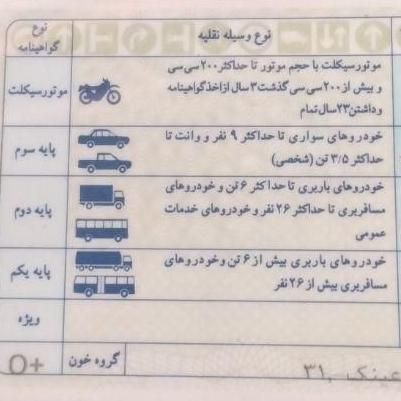 نوع گواهینامه
نوع وسیله نقلیه
موتورسیکلت
موتورسیکلت با حجم موتور تا حداکثر ۲۰۰سی‌سی
و بیش از ۲۰۰سی‌سی گذشت ۳ سال از اخذ گواهینامه
و داشتن ۲۳ سال تمام
پایه سوم
خودروهای سواری تا حداکثر ۹ نفر و وانت تا
حداکثر ۳/۵ تن (شخصی)
پایه دوم
خودروهای باربری تا حداکثر ۶ تن و خودروهای
مسافربری تا حداکثر ۲۶ نفر و خودروهای خدمات
عمومی
پایه یکم
خودروهای باربری بیش از ۶ تن و خودروهای
مسافربری بیش از ۲۶ نفر
ویژه
گروه خون
O+
عینک ۳۱.